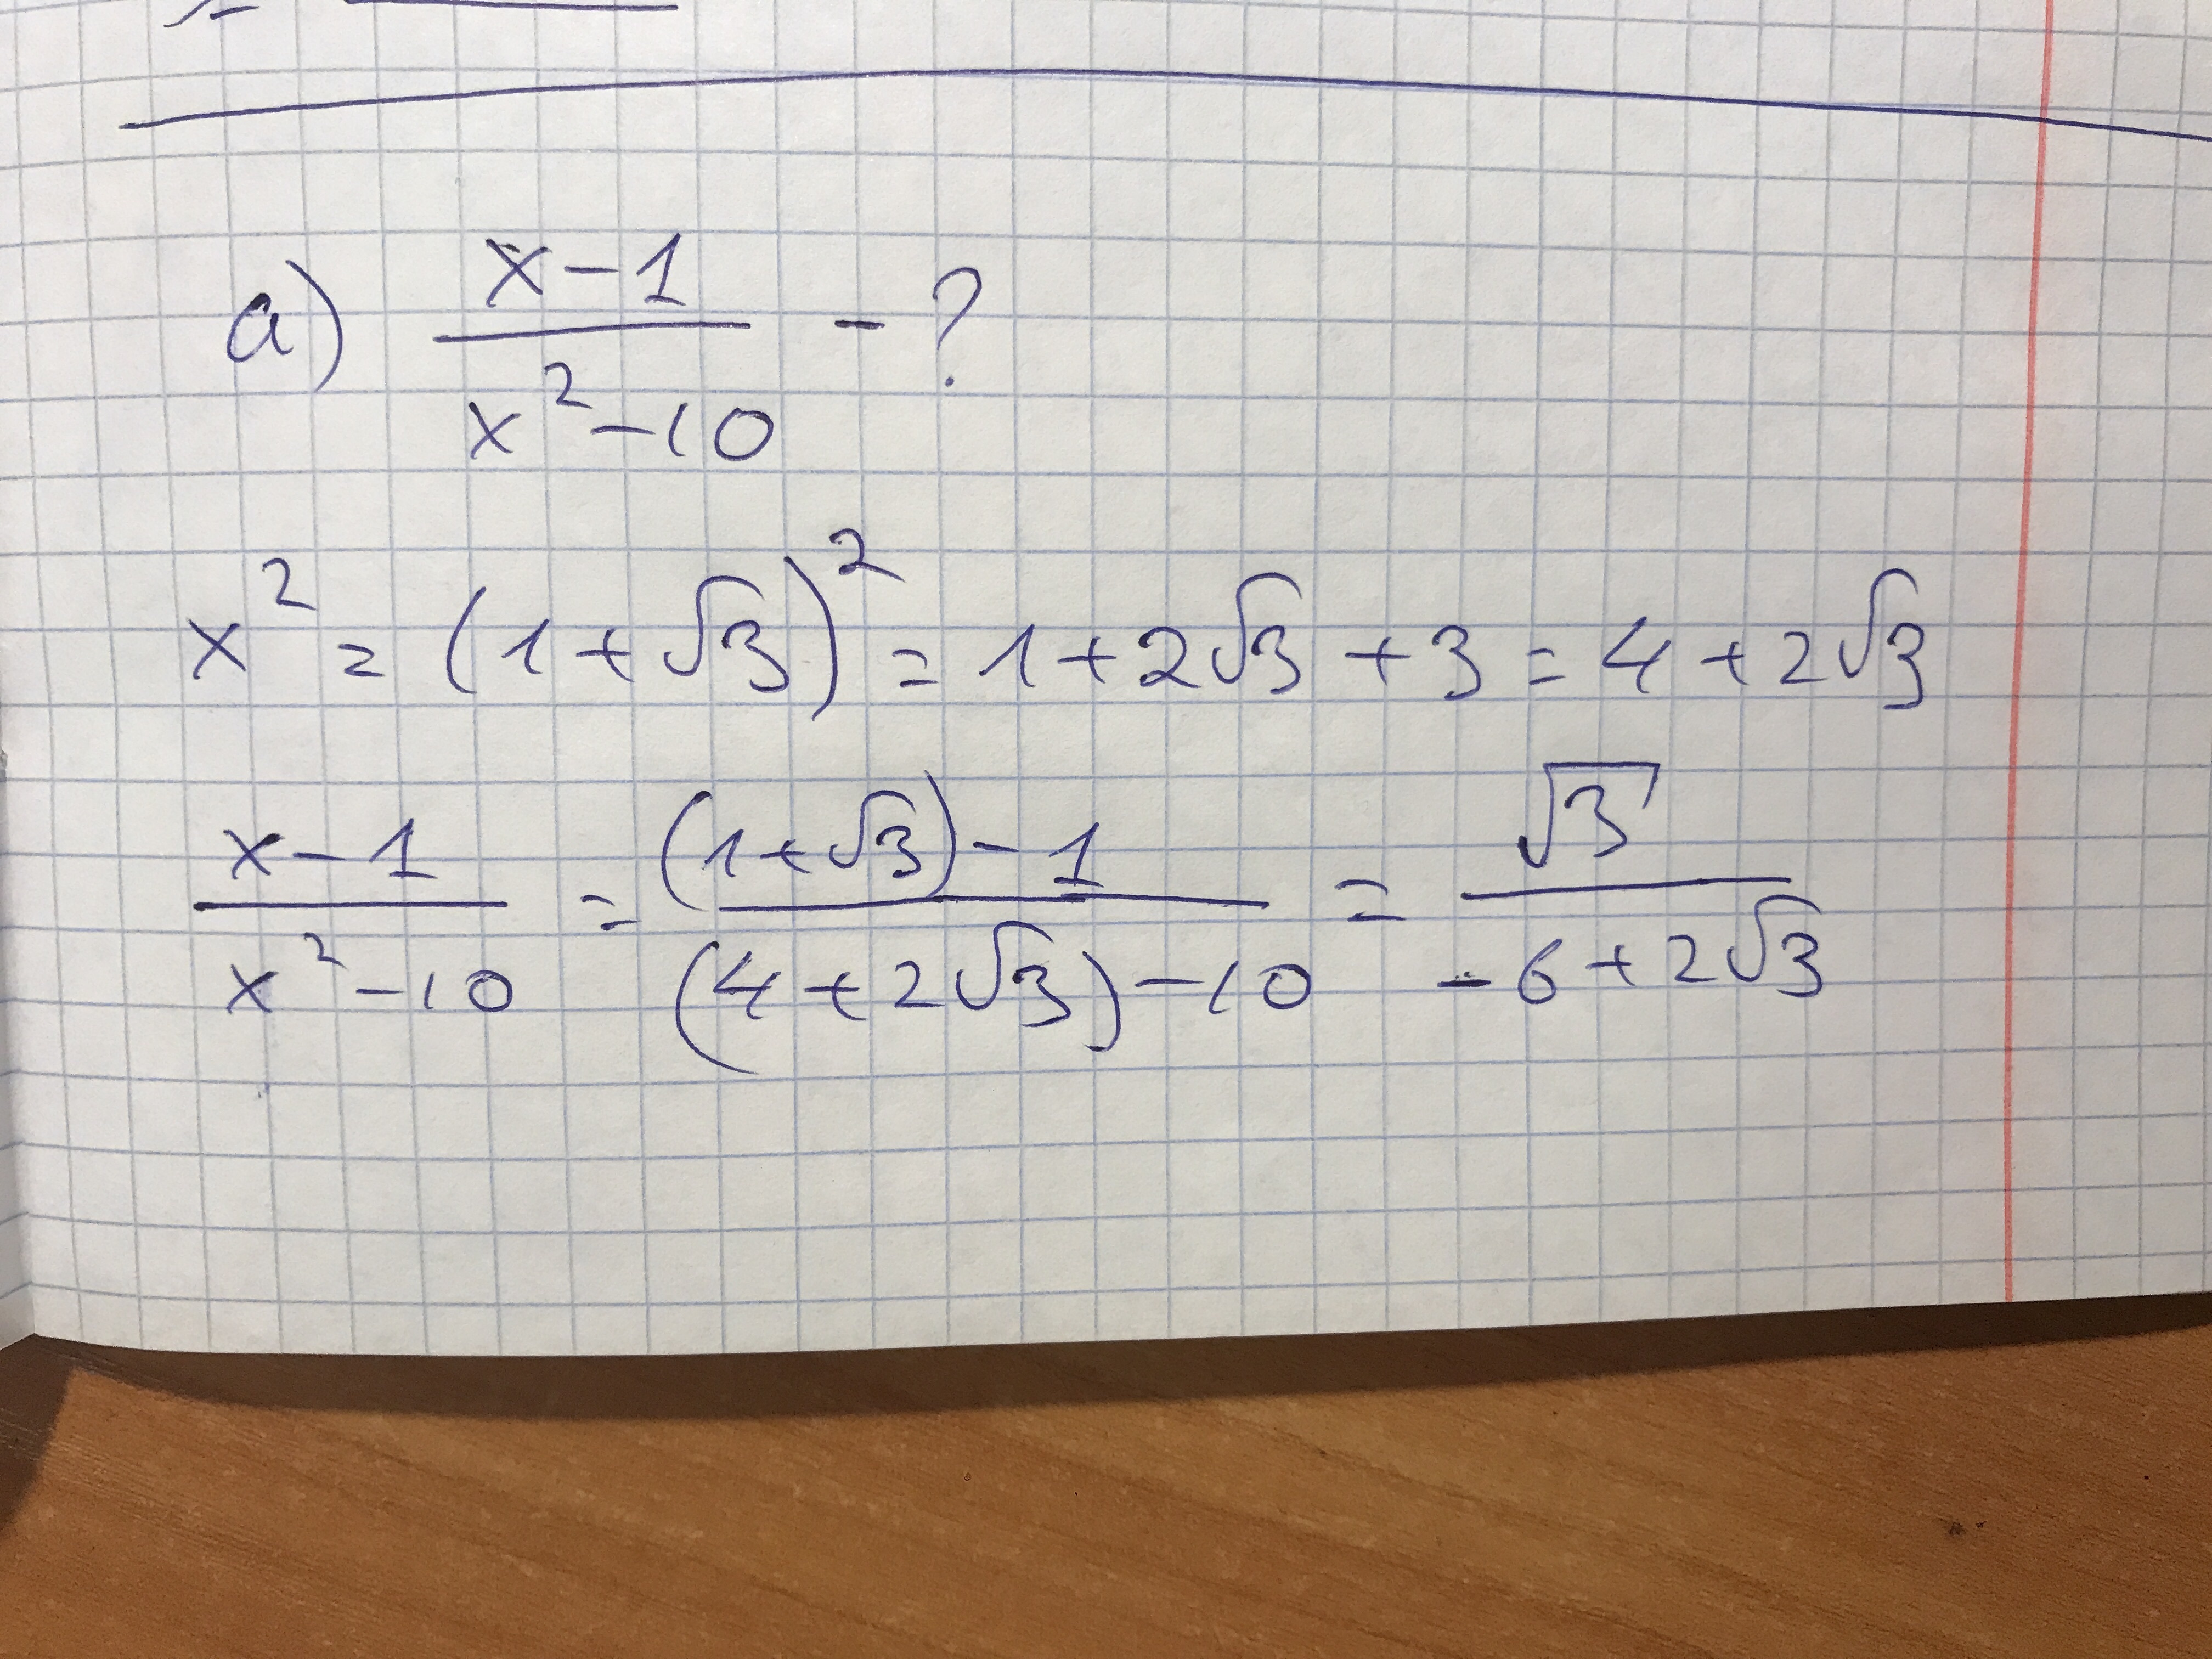 a) x-1 / x²-10 - ?
x² = (1+√3)² = 1+2√3+3 = 4+2√3
x-1 / x²-10 = (1+√3)-1 / (4+2√3)-10 = √3 / -6+2√3